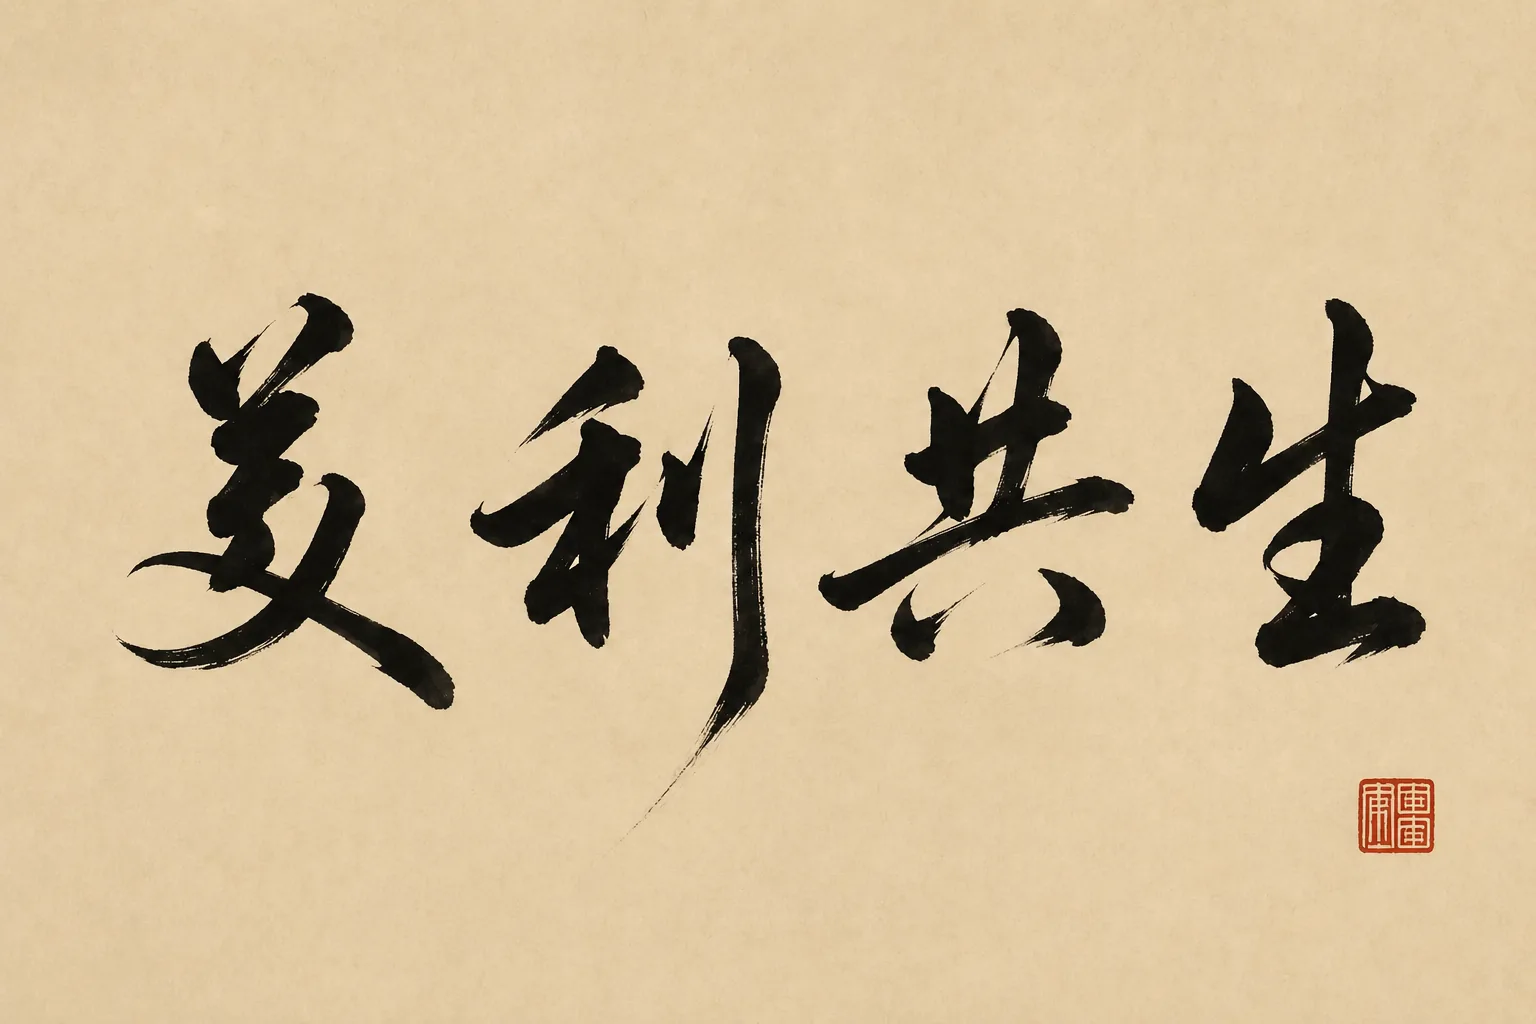 美利共生